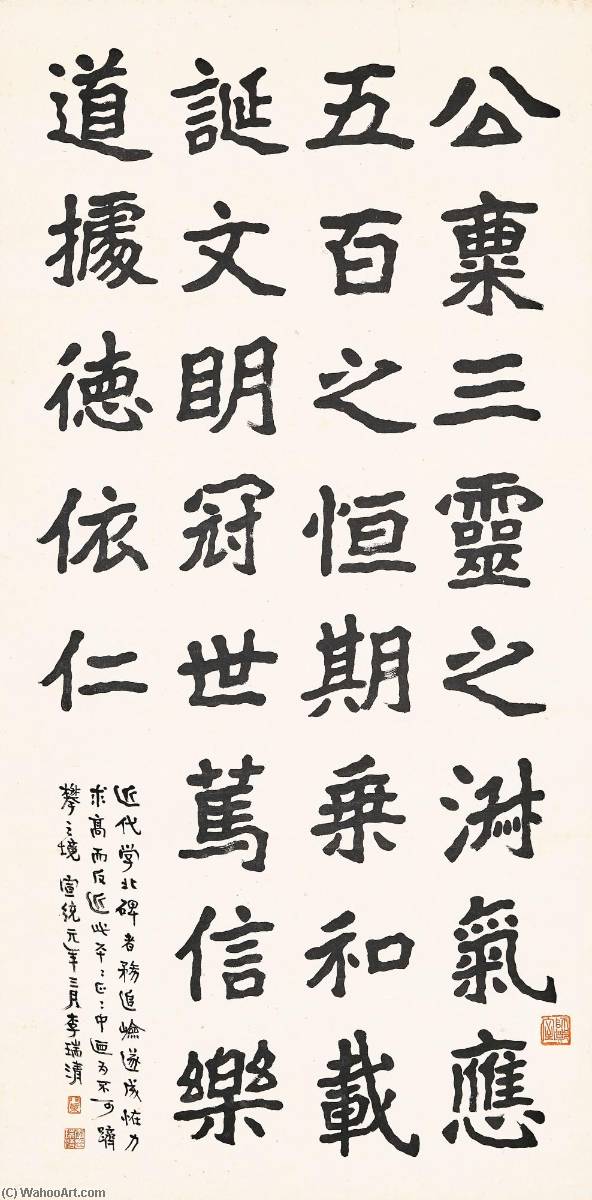 公稟三靈之淑氣應
五百之恒期乗和載
誕文眀冠世篤信樂
道據徳依仁
近代学北碑者務追嶮遂成恠力
求高而反近此平〻正〻中迺为不可躋
攀之境 宣統元年三月李瑞清
(C) WahooArt.com